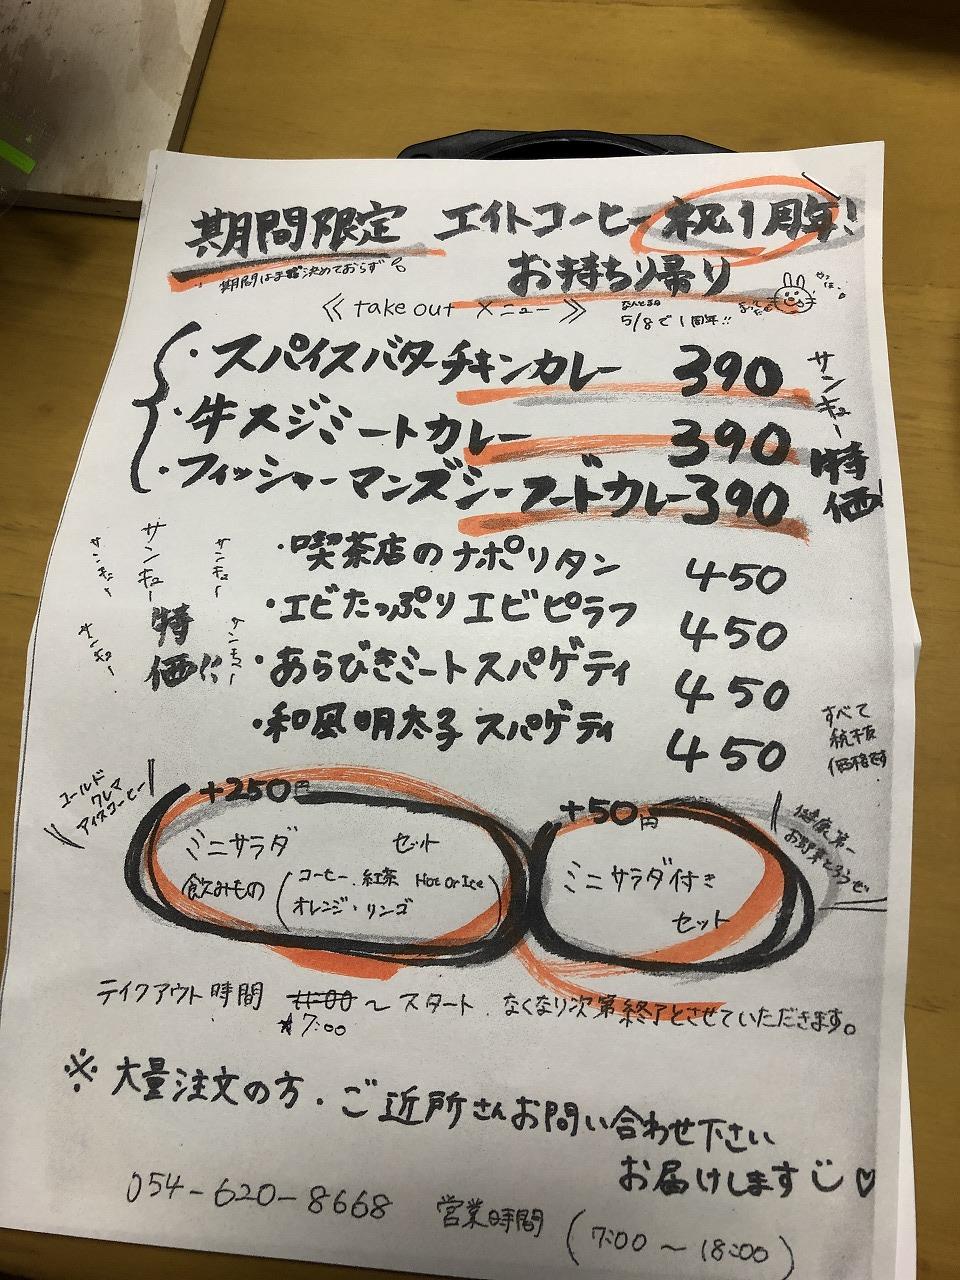 期間限定 エイトコーヒー 祝1周年!
期間はまだ決めておらず
お持ち帰り
《take out メニュー》
なんと
5/8で1周年!!
・スパイスバターチキンカレー 390
・牛スジミートカレー 390
・フィッシャーマンズシーフードカレー 390
サンキュー特価
・喫茶店のナポリタン 450
・エビたっぷりエビピラフ 450
・あらびきミートスパゲティ 450
・和風明太子スパゲティ 450
サンキュー
サンキュー
サンキュー
サンキュー
サンキュー
特価!!
すべて
税抜
価格です
ゴールド
クレマ
アイスコーヒー
+250円
ミニサラダ セット
飲みもの(コーヒー、紅茶 Hot or Ice
オレンジ・リンゴ)
+50円
ミニサラダ付き
セット
健康第一
テイクアウト時間 11:00〜スタート なくなり次第終了とさせていただきます。
7:00
※大量注文の方・ご近所さんお問い合わせ下さい
お届けします♡
054-620-8668 営業時間 (7:00〜18:00)